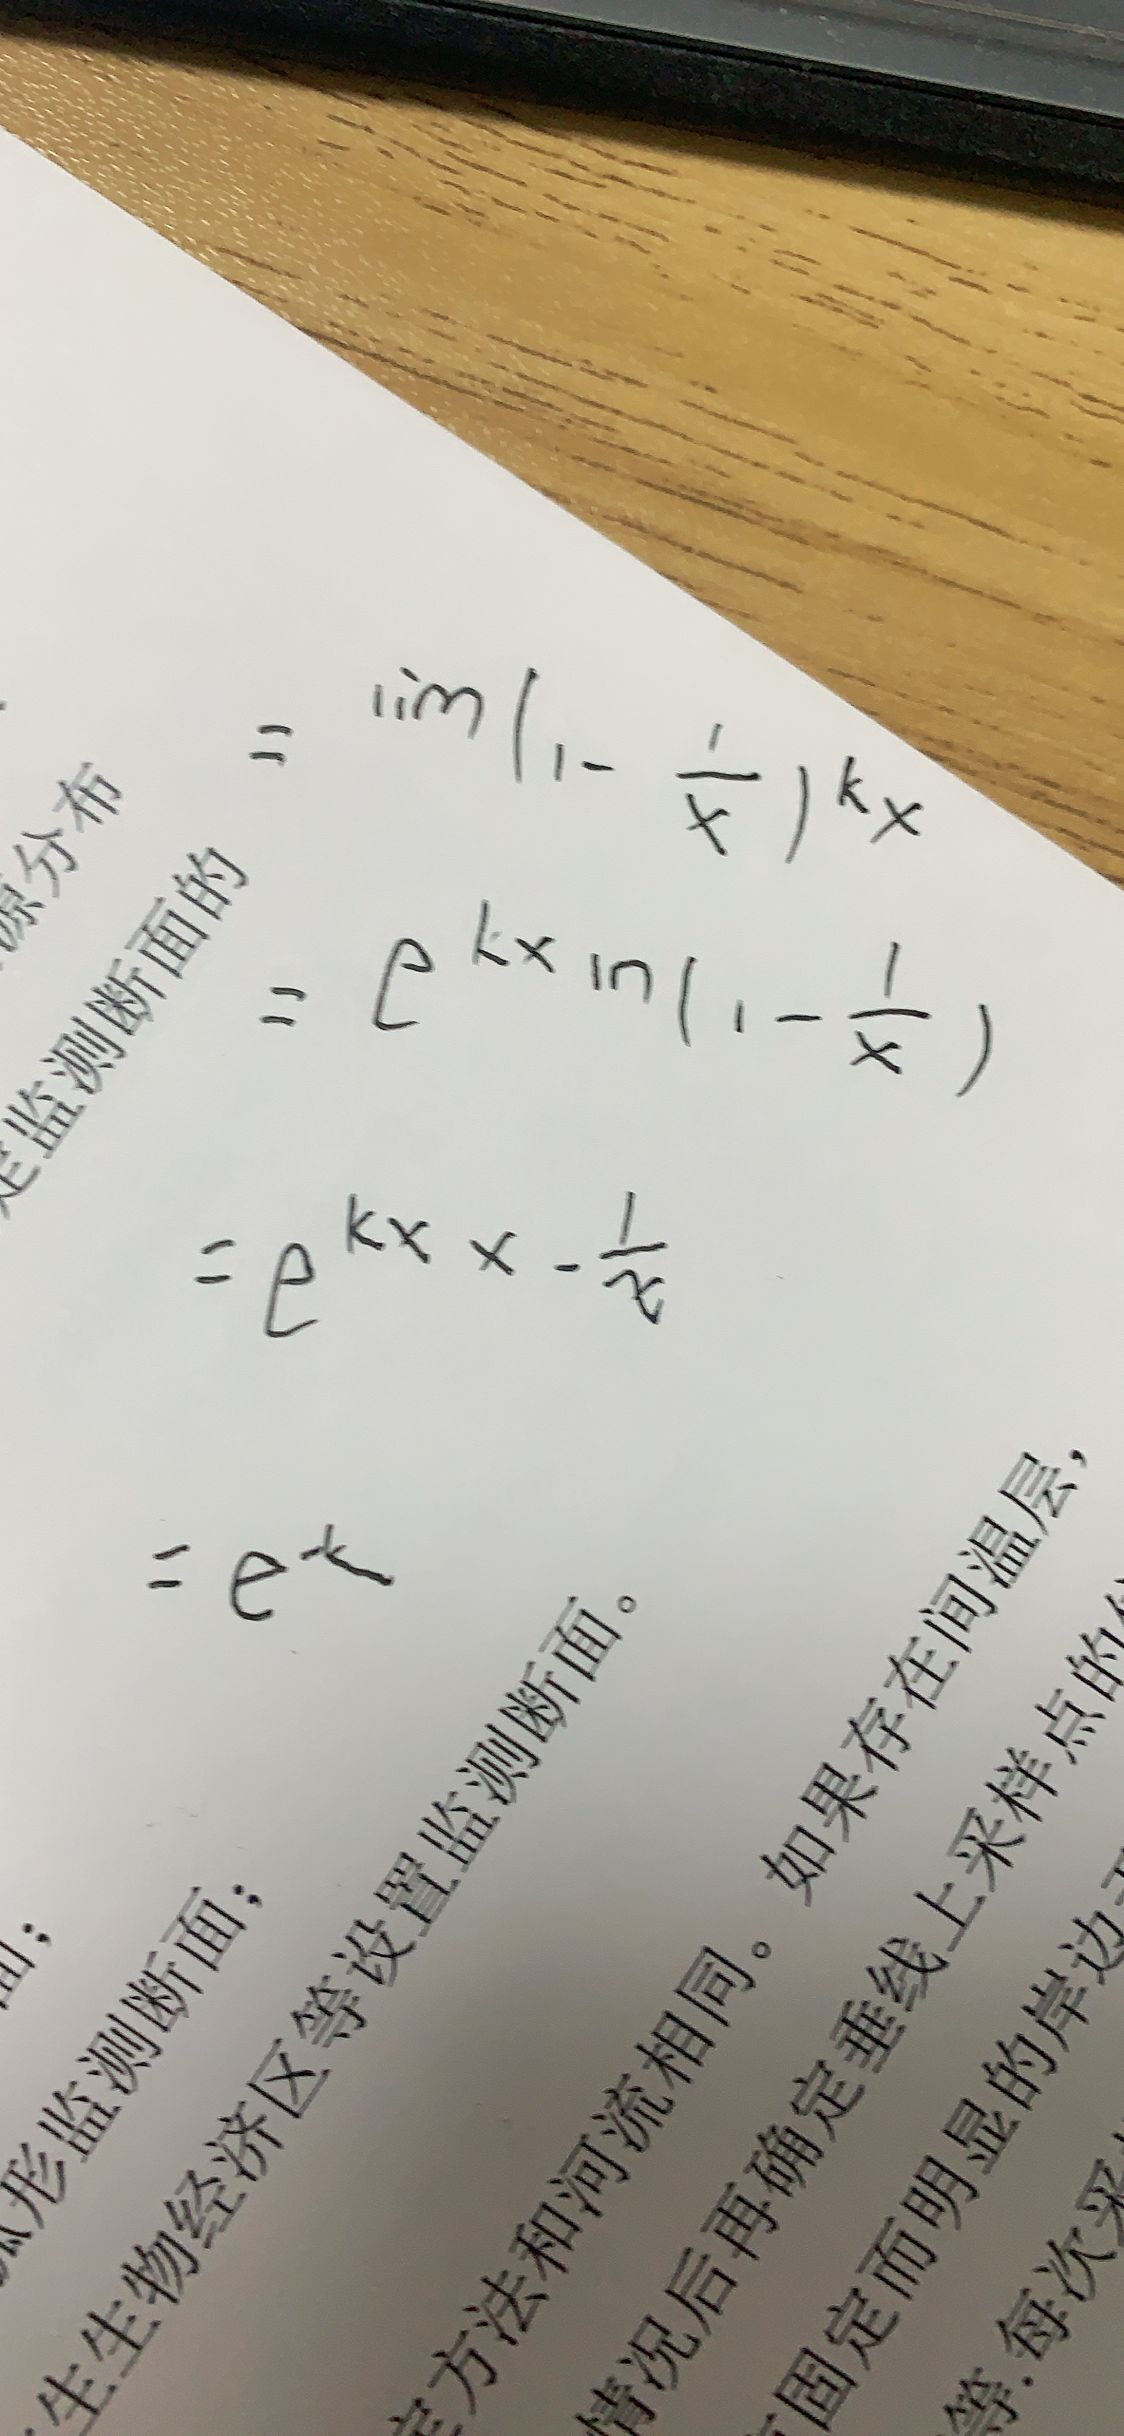 = lim(1-\frac{1}{x})^{kx}
= e^{kx ln(1-\frac{1}{x})}
= e^{kx × -\frac{1}{x}}
= e^{-k}
源分布
监测断面的
形监测断面；
生生物经济区等设置监测断面。
方法和河流相同。如果存在间温层，
情况后再确定垂线上采样点的
固定而明显的岸边
等.每次采